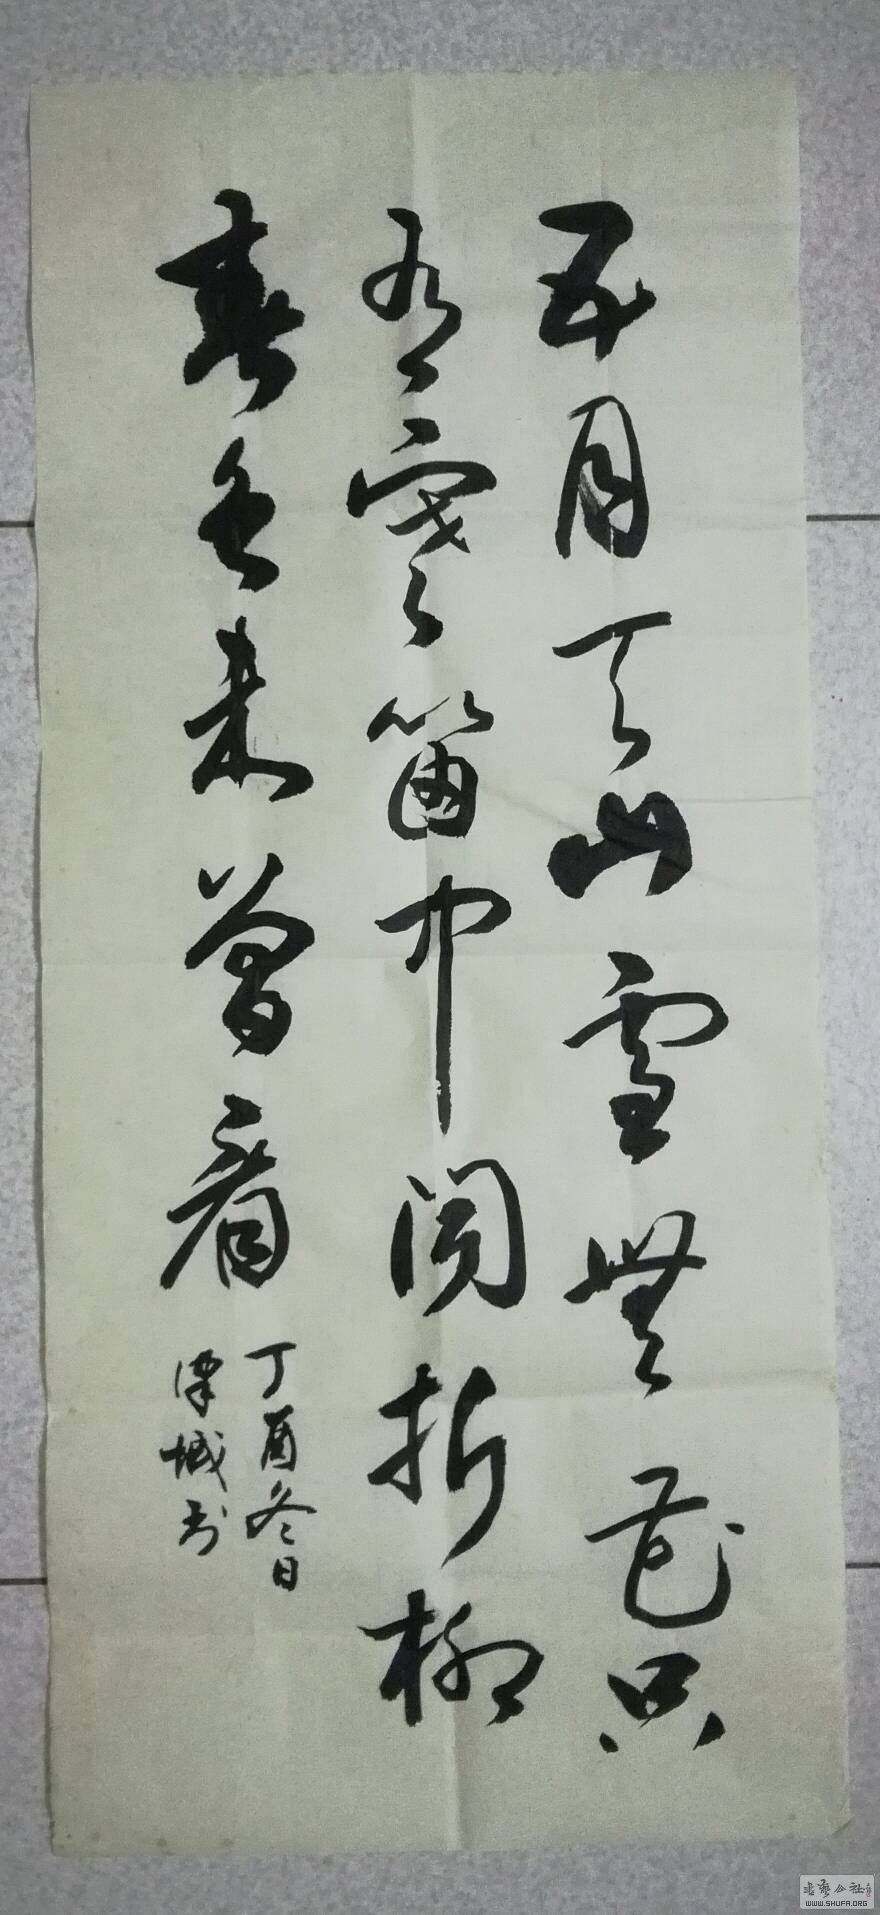 五月天山雪無花只
有寒笛中聞折柳
春色未曾看
丁酉冬日
澤城书
书艺公社
WWW.SHUFA.ORG